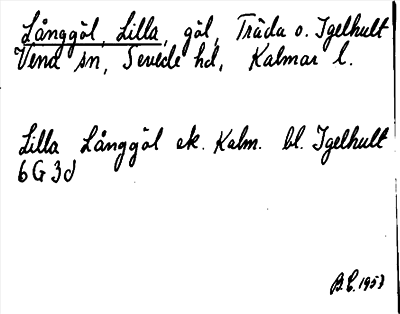 Långgöl, Lilla, göl, Träda o. Igelhult
Vena sn, Sevede hd, Kalmar l.
Lilla Långgöl ek. Kalm. bl. Igelhult
6G3d
B.E. 1953